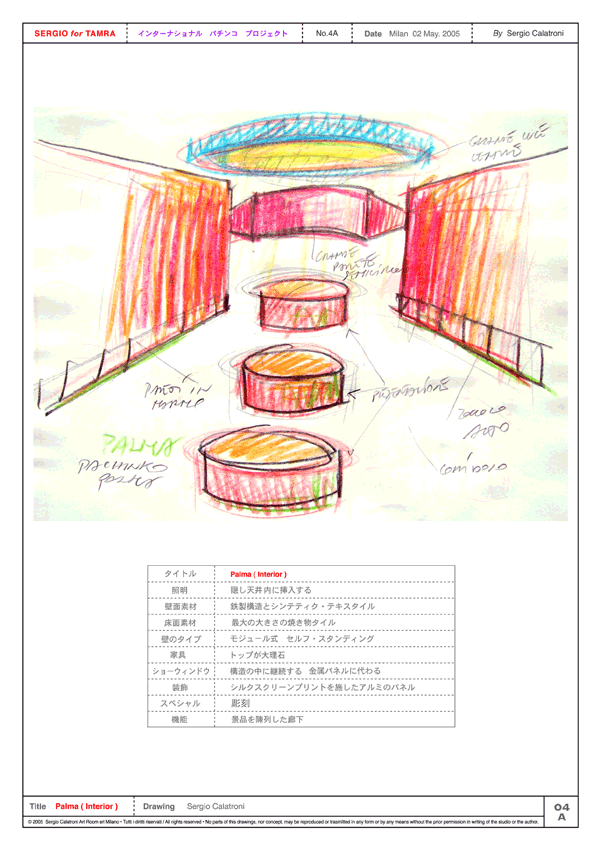 SERGIO for TAMRA インターナショナル パチンコ プロジェクト No.4A Date Milan 02 May. 2005 By Sergio Calatroni
GRANDE
PARETE
PARETI IN
MARMO
PALMA
PACHINKO
ZOCCOLO
ALTO
CORRIDOIO
タイトル Palma ( Interior )
照明 隠し天井内に挿入する
壁面素材 鉄製構造とシンテティク・テキスタイル
床面素材 最大の大きさの焼き物タイル
壁のタイプ モジュール式 セルフ・スタンディング
家具 トップが大理石
ショーウィンドウ 構造の中に継続する 金属パネルに代わる
装飾 シルクスクリーンプリントを施したアルミのパネル
スペシャル 彫刻
機能 景品を陳列した廊下
Title Palma ( Interior ) Drawing Sergio Calatroni 04
A
© 2005 Sergio Calatroni Art Room srl Milano • Tutti i diritti riservati / All rights reserved • No parts of this drawings, nor concept, may be reproduced or trasmitted in any form or by any means without the prior permission in writing of the studio or the author.